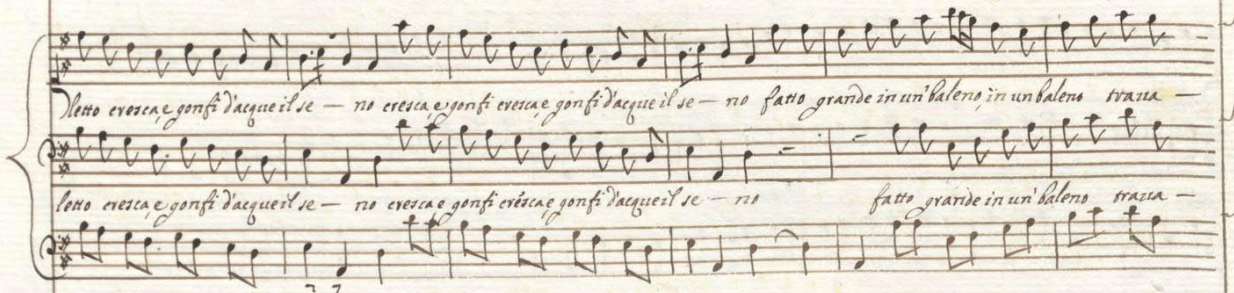 lletto cresca, e gonfi d'acque il se — no cresca, e gonfi cresca, e gonfi d'acque il se — no fatto grande in un' baleno, in un baleno trava —
letto cresca, e gonfi d'acque il se — no cresca e gonfi cresca, e gonfi d'acque il se — no fatto grande in un' baleno trava —